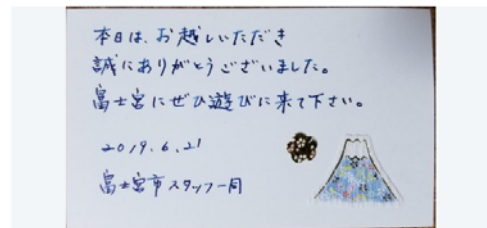 本日は、お越しいただき
誠にありがとうございました。
富士宮にぜひ遊びに来て下さい。
2019.6.21
富士宮市スタッフ一同